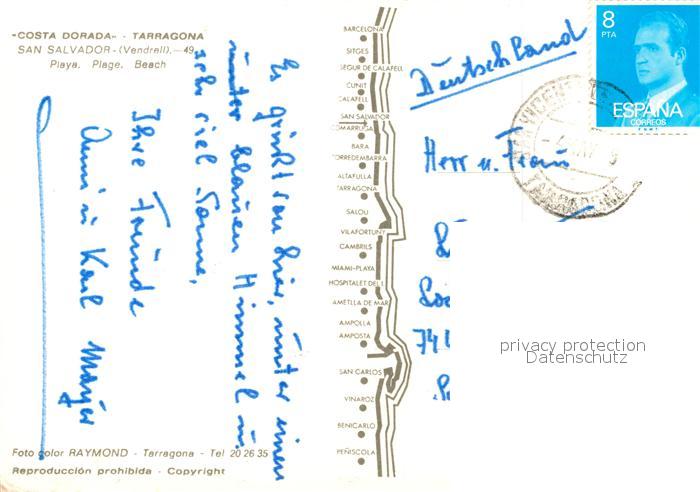 "COSTA DORADA" - TARRAGONA
SAN SALVADOR - (Vendrell). - 49
Playa. Plage. Beach
Es grüßt von hier, unter einem
blauen Himmel u.
sehr viel Sonne,
Ihre Freunde
Anni u Karl Mayer
Foto color RAYMOND - Tarragona - Tel 20 26 35
Reproducción prohibida - Copyright
BARCELONA
SITGES
SEGUR DE CALAFELL
CUNIT
CALAFELL
SAN SALVADOR
COMARRUGA
BARA
TORREDEMBARRA
ALTAFULLA
TARRAGONA
SALOU
VILAFORTUNY
CAMBRILS
MIAMI-PLAYA
HOSPITALET DEL I.
AMETLLA DE MAR
AMPOLLA
AMPOSTA
SAN CARLOS
VINAROZ
BENICARLO
PEÑISCOLA
8
PTA
ESPAÑA
CORREOS
F.N.M.T.
TARRAGONA
Deutschland
Herr u. Frau
741
privacy protection
Datenschutz